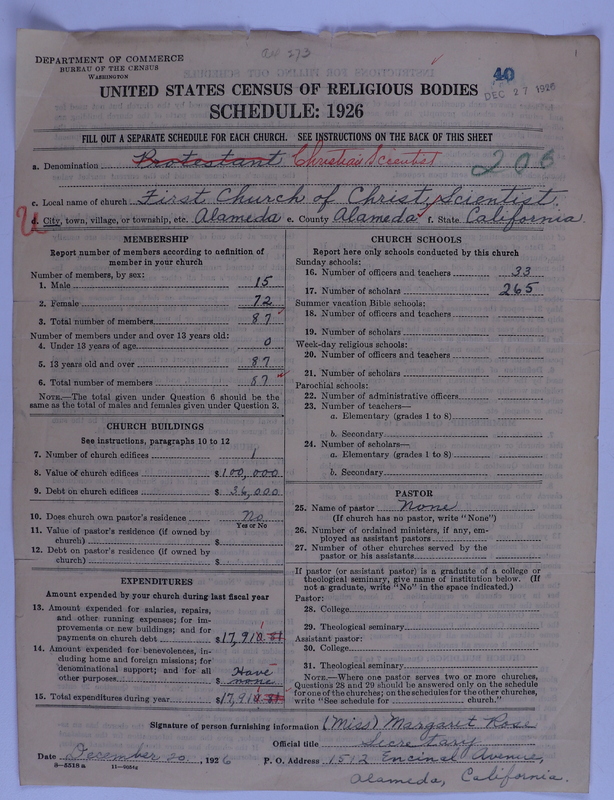 DEPARTMENT OF COMMERCE
BUREAU OF THE CENSUS
WASHINGTON
40
DEC 27 1926
UNITED STATES CENSUS OF RELIGIOUS BODIES
SCHEDULE: 1926
FILL OUT A SEPARATE SCHEDULE FOR EACH CHURCH. SEE INSTRUCTIONS ON THE BACK OF THIS SHEET
a. Denomination Protestant Christian Scientist
c. Local name of church First Church of Christ, Scientist
d. City, town, village, or township, etc. Alameda e. County Alameda f. State California
MEMBERSHIP
Report number of members according to definition of
member in your church
Number of members, by sex:
1. Male 15
2. Female 72
3. Total number of members 87
Number of members under and over 13 years old:
4. Under 13 years of age 0
5. 13 years old and over 87
6. Total number of members 87
NOTE.—The total given under Question 6 should be the
same as the total of males and females given under Question 3.
CHURCH BUILDINGS
See instructions, paragraphs 10 to 12
7. Number of church edifices 1
8. Value of church edifices $100,000
9. Debt on church edifices $36,000
10. Does church own pastor's residence No
Yes or No
11. Value of pastor's residence (if owned by
church) $
12. Debt on pastor's residence (if owned by
church) $
EXPENDITURES
Amount expended by your church during last fiscal year
13. Amount expended for salaries, repairs,
and other running expenses; for im-
provements or new buildings; and for
payments on church debt $17,910.81
14. Amount expended for benevolences, in-
cluding home and foreign missions; for
denominational support; and for all
other purposes $ Have none
15. Total expenditures during year $17,910.81
CHURCH SCHOOLS
Report here only schools conducted by this church
Sunday schools:
16. Number of officers and teachers 33
17. Number of scholars 265
Summer vacation Bible schools:
18. Number of officers and teachers
19. Number of scholars
Week-day religious schools:
20. Number of officers and teachers
21. Number of scholars
Parochial schools:
22. Number of administrative officers
23. Number of teachers—
a. Elementary (grades 1 to 8)
b. Secondary
24. Number of scholars—
a. Elementary (grades 1 to 8)
b. Secondary
PASTOR
25. Name of pastor None
(If church has no pastor, write "None")
26. Number of ordained ministers, if any, em-
ployed as assistant pastors
27. Number of other churches served by the
pastor or his assistants
If pastor (or assistant pastor) is a graduate of a college or
theological seminary, give name of institution below. (If
not a graduate, write "No" in the space indicated.)
Pastor:
28. College
29. Theological seminary
Assistant pastor:
30. College
31. Theological seminary
NOTE.—Where one pastor serves two or more churches,
Questions 28 and 29 should be answered only on the schedule
for one of the churches; on the schedules for the other churches,
write "See schedule for church."
Signature of person furnishing information (Miss) Margaret Rose
Official title Secretary
Date December 20, 1926 P. O. Address 1512 Encinal Avenue,
Alameda, California.